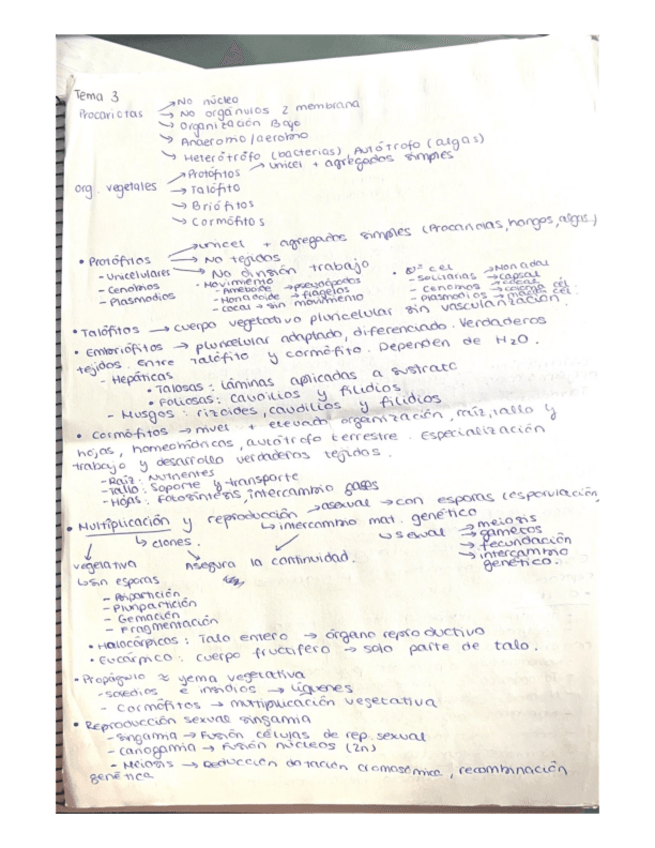 Tema 3
Procariotas → No núcleo
→ No orgánulos 2 membrana
→ Organización Bajo
→ Anaerobio/aerobio
→ Heterótrofo (bacterias), Autótrofo (algas)
org. vegetales → Protófitos → unicel + agregados simples
→ Talófito
→ Briófitos
→ Cormófitos
• Protófitos → unicel + agregados simples (Procariotas, hongos, algas)
→ No tejidos
→ No división trabajo
- Unicelulares
- Cenomios
- Plasmodios
· Movimiento
- Ameboide → pseudópodos
- Monadoide → flagelos
- cocal → sin movimiento
• Nº cel
- solitarias → Monadal
→ capsal
→ cocal
- Cenomios → colonia cél
- plasmodios → masa cél.
• Talófitos → cuerpo vegetativo pluricelular sin vascularización.
• Embriófitos → pluricelular adaptado, diferenciado. Verdaderos
tejidos. Entre talófito y cormófito. Dependen de H2O.
- Hepáticas
• Talosas: láminas aplicadas a sustrato
• Foliosas: caudilios y filidios
- Musgos: rizoides, caudilios y filidios
• Cormófitos → nivel + elevado organización, raíz, tallo y
hojas, homeohídricas, autótrofo terrestre. Especialización
trabajo y desarrollo verdaderos tejidos.
- Raíz: Nutrientes
- Tallo: Soporte y transporte
- Hojas: Fotosíntesis, intercambio gases
• Multiplicación y reproducción → asexual → con esporas (esporulación)
↳ intercambio mat. genético
↳ clones.
↳ sexual → meiosis
→ gametos
→ fecundación
→ intercambio
genético.
vegetativa
Asegura la continuidad.
↳ sin esporas
- Bipartición
- Pluripartición
- Gemación
- Fragmentación
• Holocárpicos: Talo entero → órgano reproductivo
• Eucárpico: cuerpo fructífero → solo parte de talo.
• Propágulo ≈ yema vegetativa
- soledios e insidios → líquenes
- Cormófitos → multiplicación vegetativa
• Reproducción sexual singamia
- Singamia → Fusión células de rep. sexual
- Cariogamia → Fusión núcleos (2n)
- Meiosis → Reducción dotación cromosómica, recombinación
genética